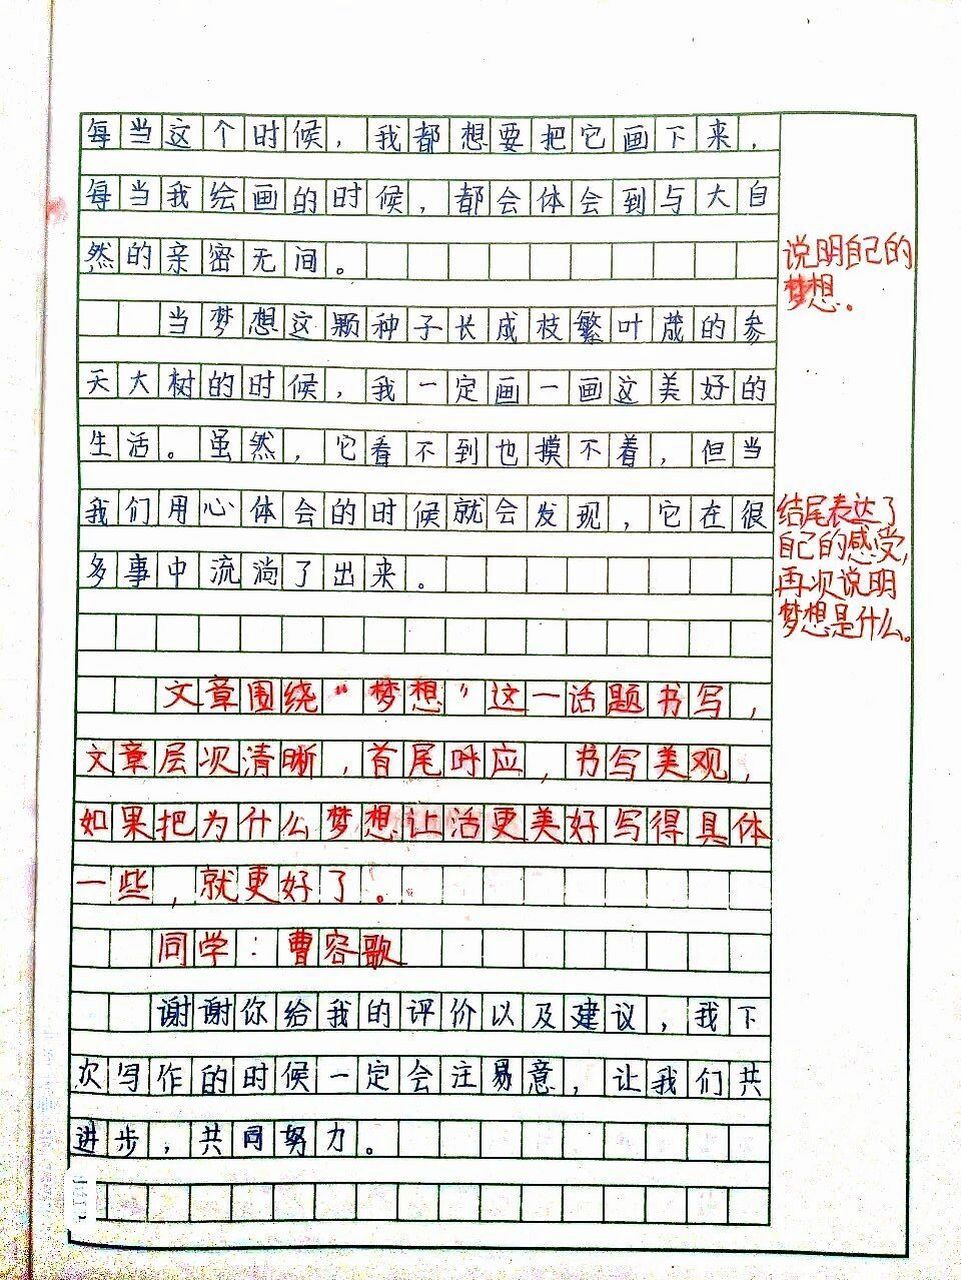 每当这个时候，我都想要把它画下来，
每当我绘画的时候，都会体会到与大自
然的亲密无间。
当梦想这颗种子长成枝繁叶茂的参
天大树的时候，我一定画一画这美好的
生活。虽然，它看不到也摸不着，但当
我们用心体会的时候就会发现，它在很
多事中流淌了出来。
文章围绕“梦想”这一话题书写，
文章层次清晰，首尾呼应，书写美观，
如果把为什么梦想让活更美好写得具体
一些，就更好了。
同学：曹容歌
谢谢你给我的评价以及建议，我下
次写作的时候一定会注易意，让我们共
进步，共同努力。
说明自己的
梦想。
结尾表达了
自己的感受，
再次说明
梦想是什么。